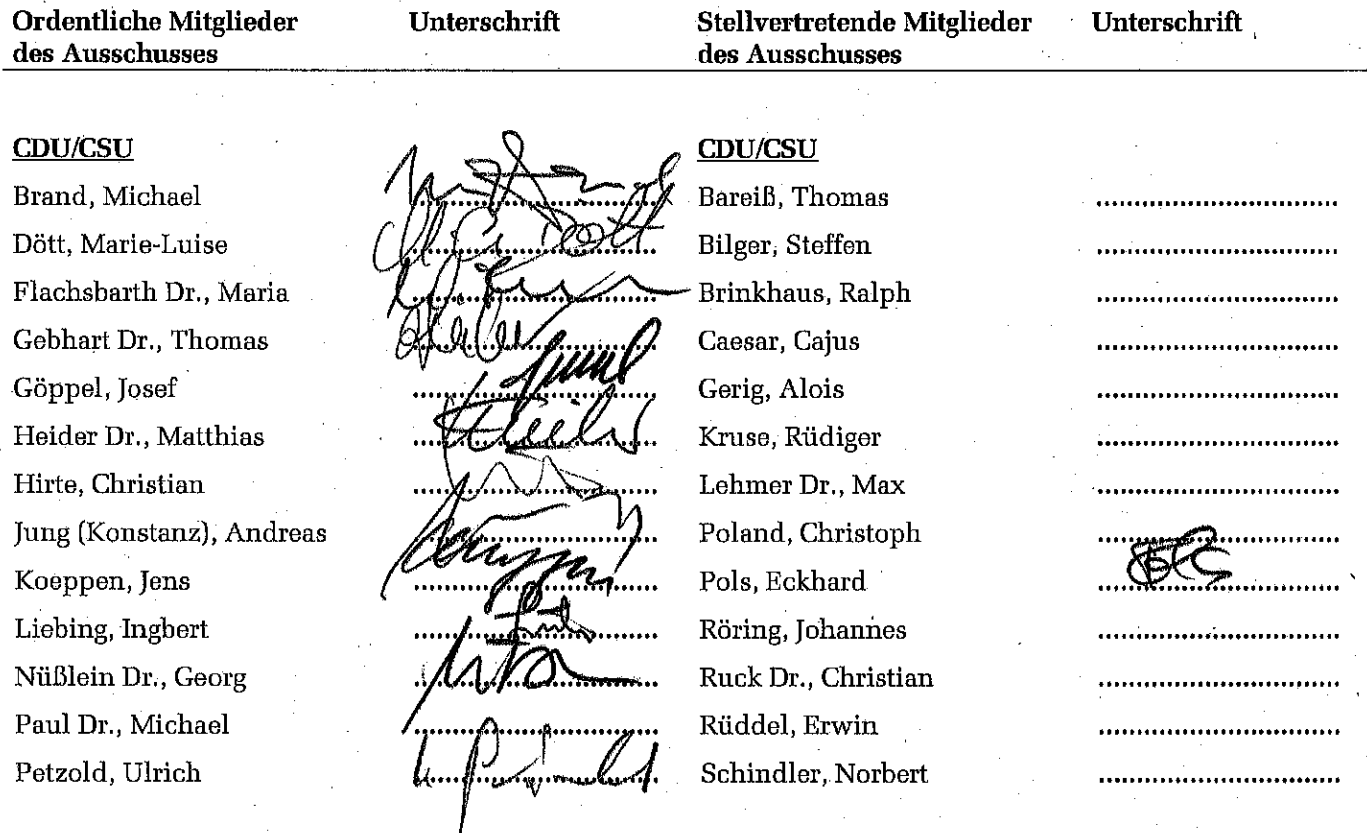 Ordentliche Mitglieder Unterschrift Stellvertretende Mitglieder Unterschrift
des Ausschusses des Ausschusses
CDU/CSU CDU/CSU
Brand, Michael Bareiß, Thomas
Dött, Marie-Luise Dött Bilger, Steffen
Flachsbarth Dr., Maria Brinkhaus, Ralph
Gebhart Dr., Thomas Caesar, Cajus
Göppel, Josef Gerig, Alois
Heider Dr., Matthias Kruse, Rüdiger
Hirte, Christian Lehmer Dr., Max
Jung (Konstanz), Andreas Poland, Christoph
Koeppen, Jens Pols, Eckhard
Liebing, Ingbert Röring, Johannes
Nüßlein Dr., Georg Ruck Dr., Christian
Paul Dr., Michael Rüddel, Erwin
Petzold, Ulrich Schindler, Norbert